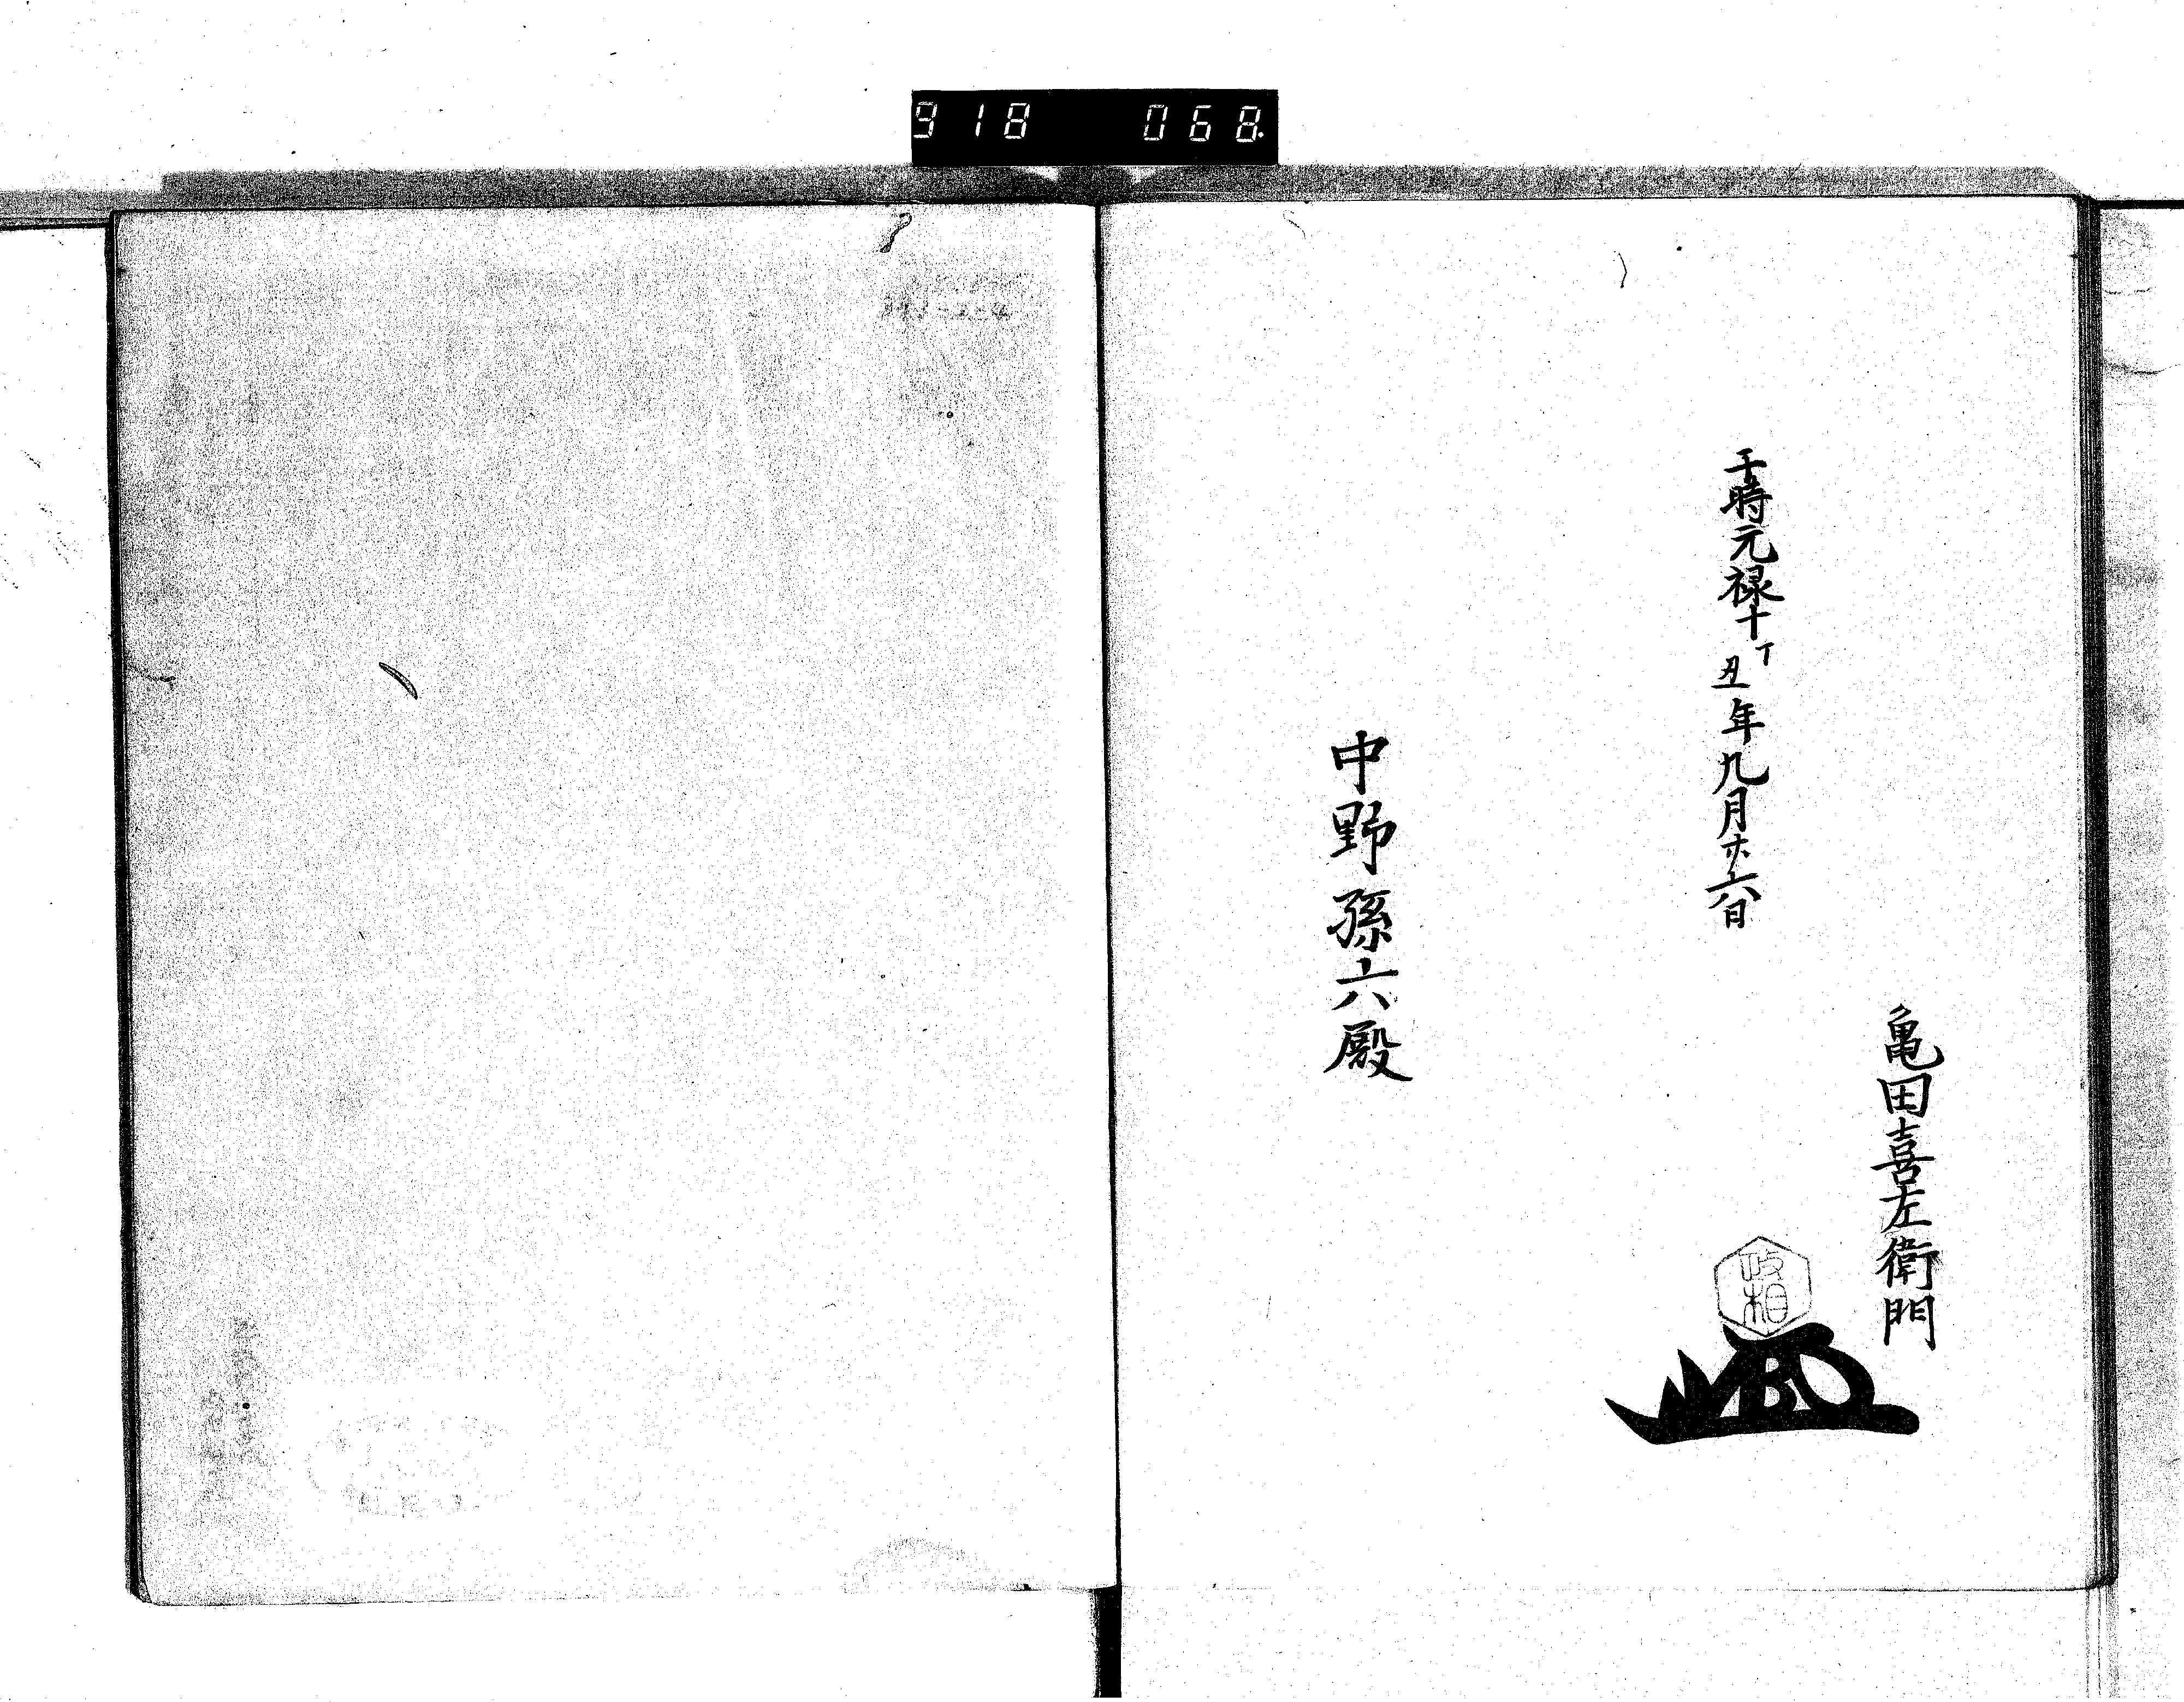 918 068
亀田喜左衛門
政相
于時元禄十丁丑年九月廿六日
中野孫六殿